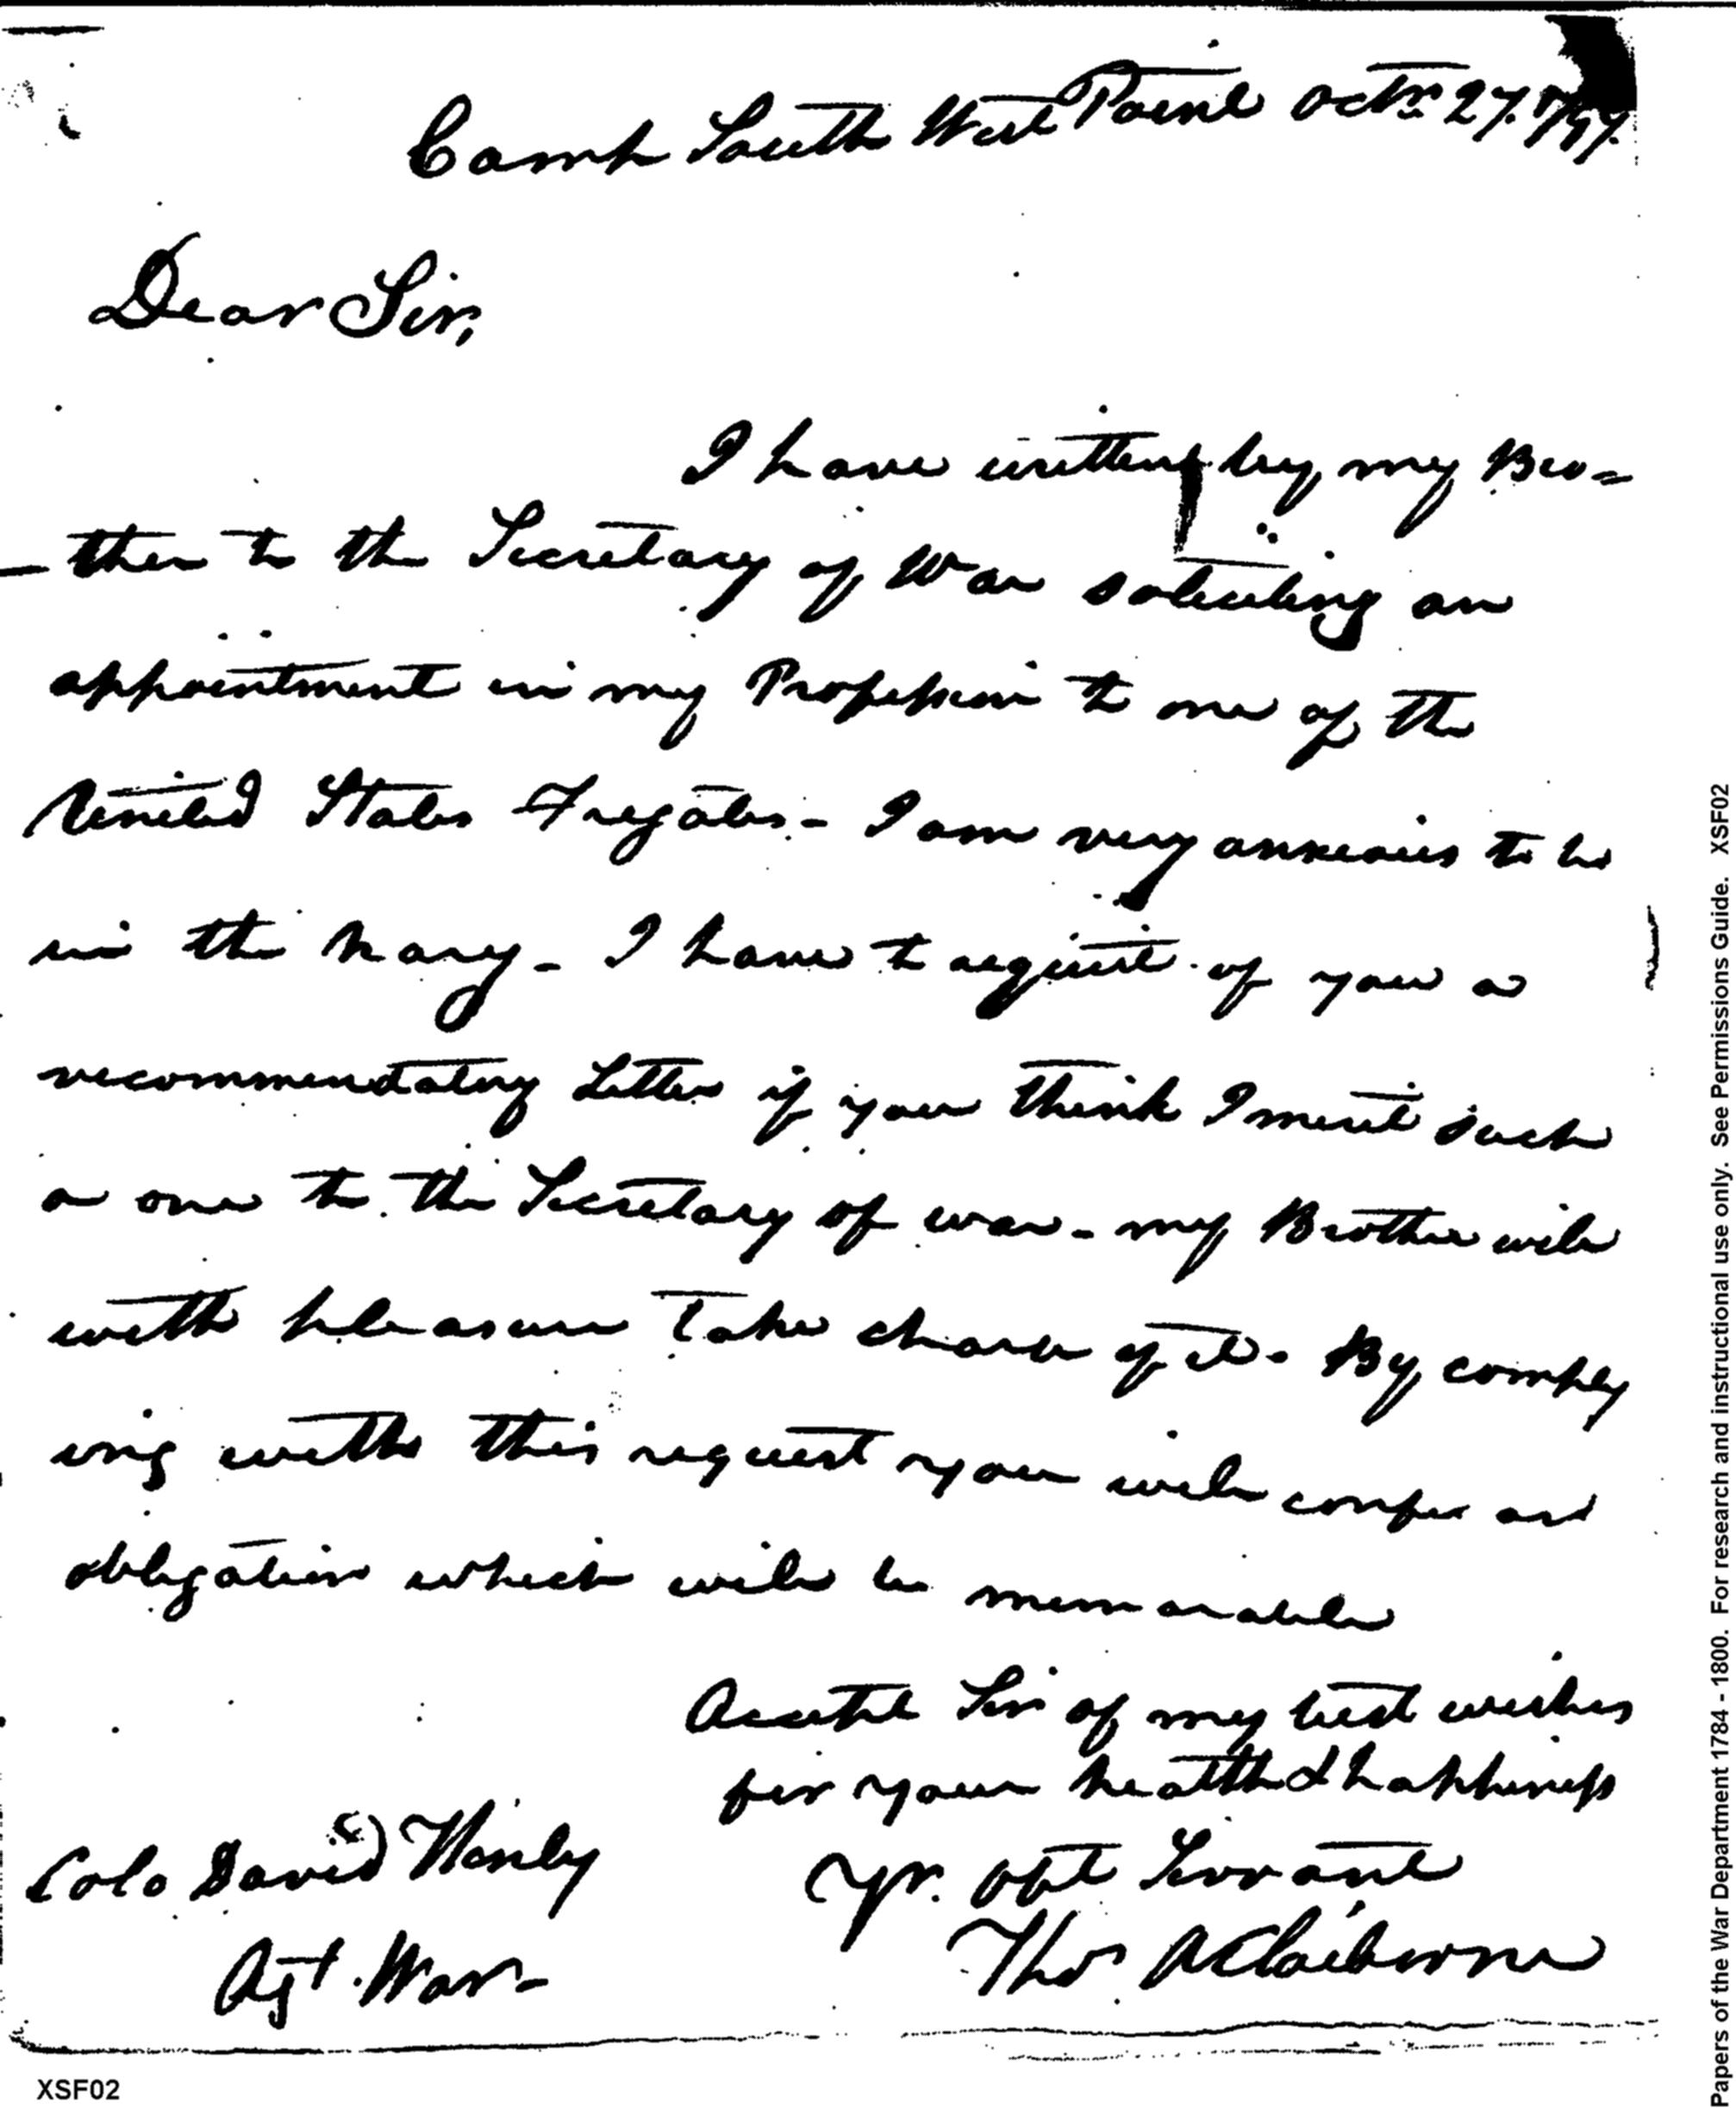 Camp South West Point Octr. 27. 1797.
Dear Sir,
I have written by my Bro=
-ther to the Secretary of War soliciting an
appointment in my Profession to one of the
United States Fregates. - I am very anxious to be
in the Navy - I have to request of you a
recommendatory Letter if you think I merit such
a one to the Secretary of war - my Brother will
with pleasure take charge of it. By comply
ing with this request you will confer an
obligation which will be memorable
Accept Sir of my best wishes
for your health & happiness
Yr. obt Servant
Thos A Claiborne
Colo David Henley
Agt. War
XSF02
Papers of the War Department 1784 - 1800. For research and instructional use only. See Permissions Guide. XSF02